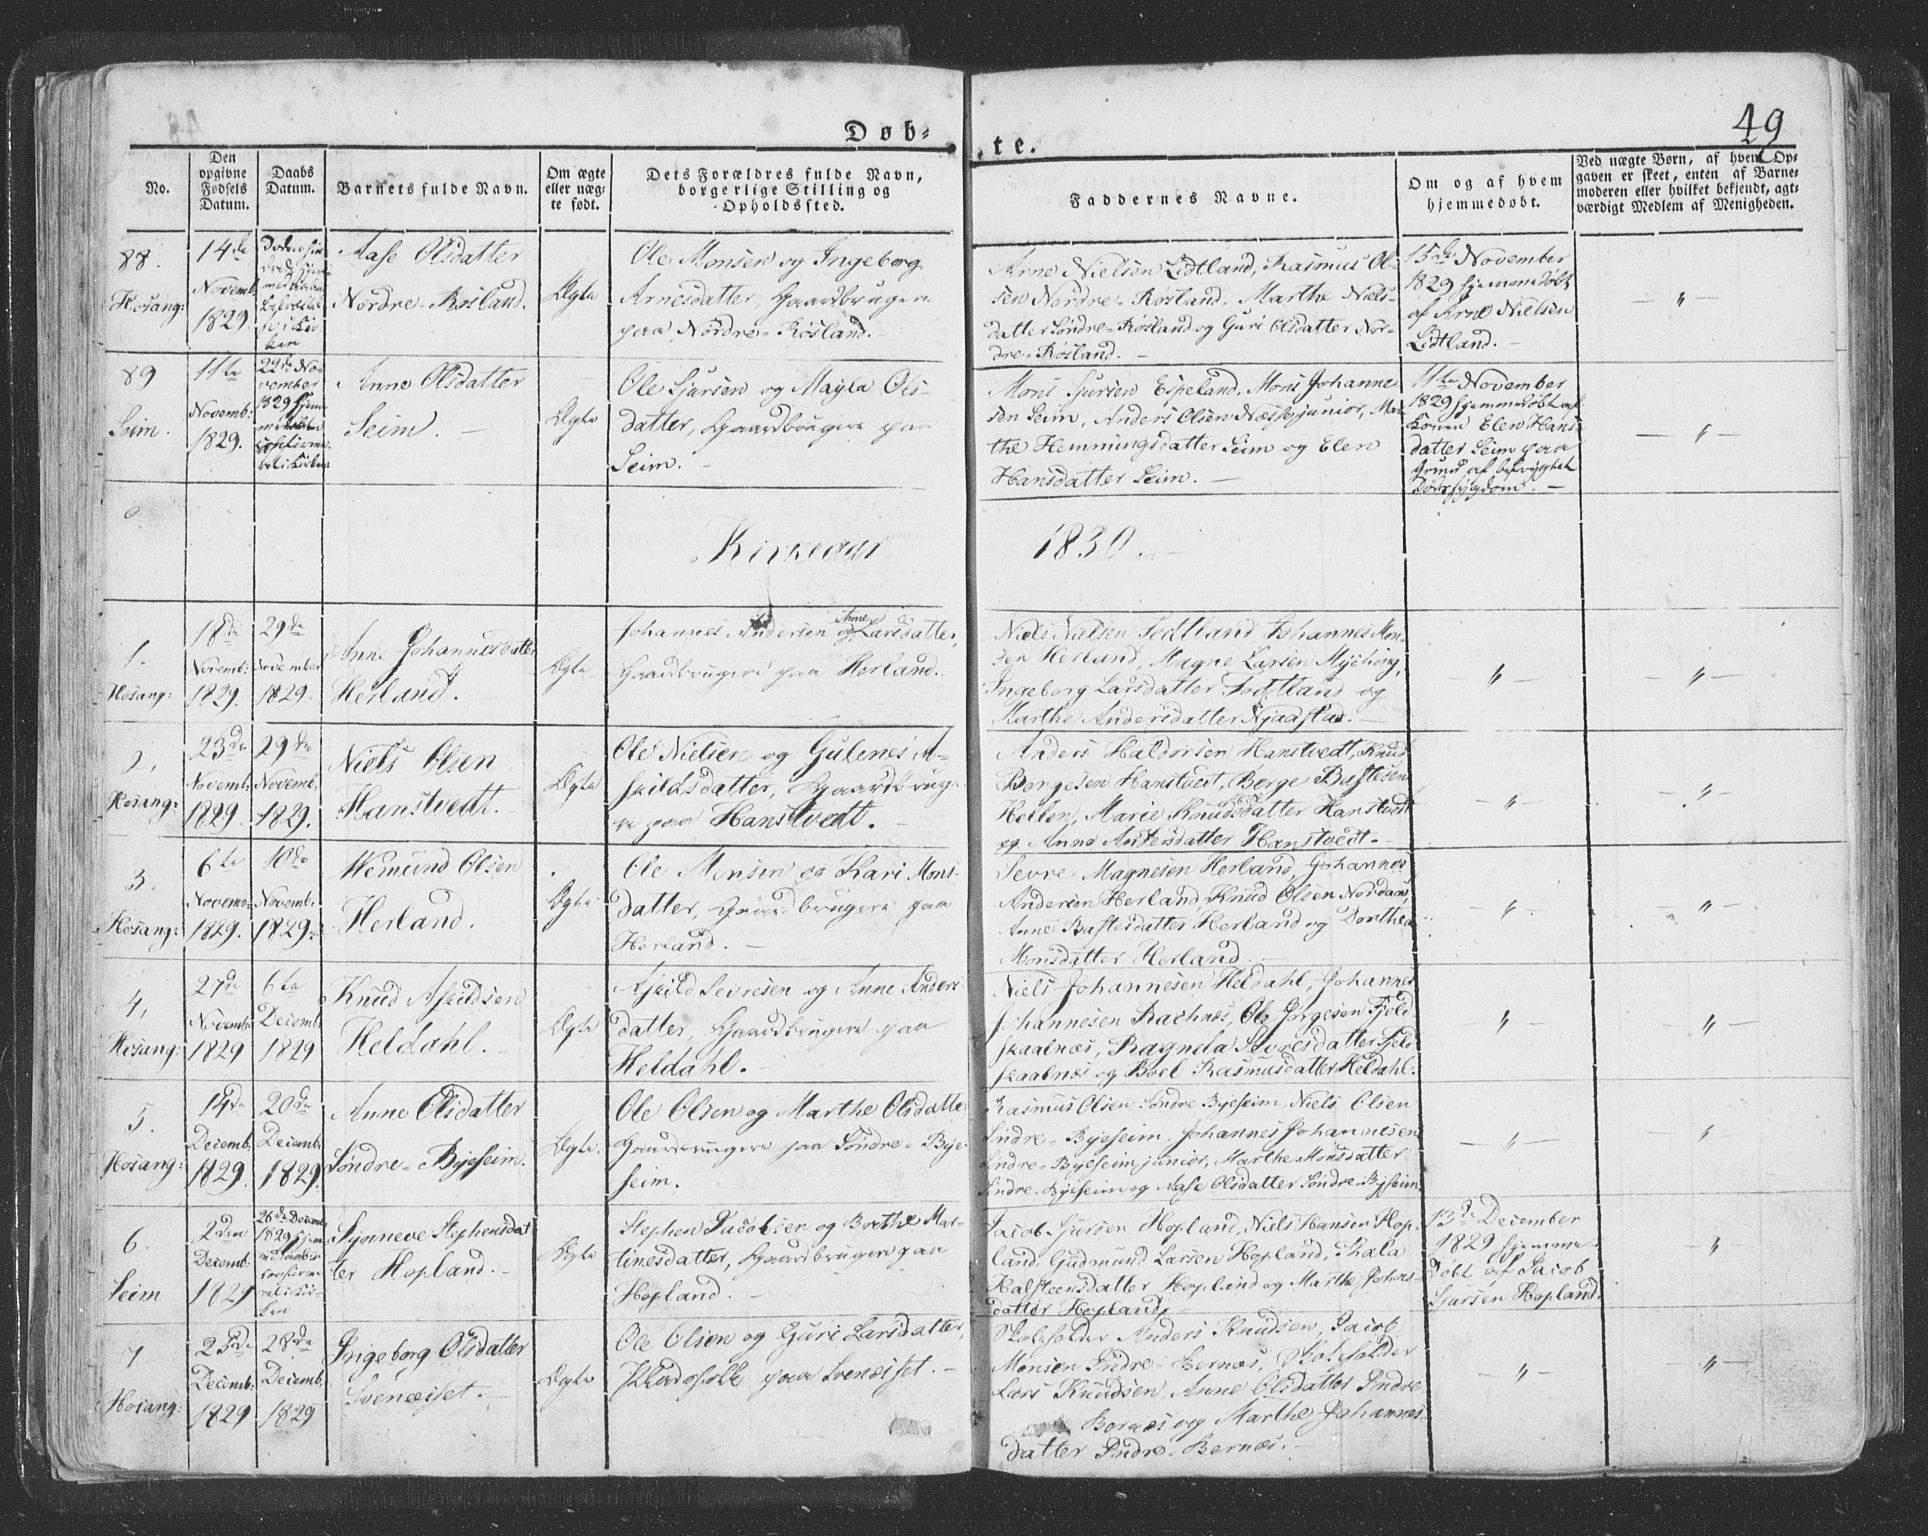 49
Døb-
te.
No.
Den opgivne Fødsels Datum.
Daabs Datum.
Barnets fulde Navn.
Om ægte eller nægte født.
Dets Forældres fulde Navn, borgerlige Stilling og Opholdssted.
Faddernes Navne.
Om og af hvem hjemmedøbt.
Ved nægte Børn, af hvem Opgaven er skeet, enten af Barnemoderen eller hvilket bekjendt, agtværdigt Medlem af Menigheden.
88.
Hosang:
14de
Novemb:
1829.
Aase Olsdatter
Nordre-Røsland.
Ægte
Ole Monsen og Ingeborg
Arnesdatter, Gaardbrugere
paa Nordre-Røsland.
Arne Nielsen Lidtland, Rasmus Ol-
sen Nordre-Røsland, Marthe Niels-
datter Søndre-Røsland og Guri Olsdatter Nor-
dre-Røsland.
15de November
1829 hjemmedøbt
af Arne Nielsen
Lidtland.
— " —
89
Seim.
11te
Novemb:
1829.
22de No-
vember
1829
Anne Olsdatter
Seim.
Ægte
Ole Sjursen og Magla Ols-
datter, Gaardbrugere paa
Seim.
Mons Sjursen Espeland, Mons Johanne-
sen Seim, Anders Olsen Næsse junior, Mar-
the Hemmingsdatter Seim og Elen
Hansdatter Seim.
11te November
1829 hjemmedøbt af
Konen Elen Hans-
datter Seim paa
Grund af befrygtet
Dødssygdom.
— " —
Kirkeaar
1830.
1.
Hosang:
18de
Novemb:
1829.
29de
November
1829.
Anne Johannesdatter
Herland.
Ægte
Johannes Andersen og Anne Larsdatter,
Gaardbrugere paa Herland.
Niels Nielsen Fodtland, Johannes Mon-
sen Herland, Magne Larsen Myhring,
Ingeborg Larsdatter Fodtland og
Marthe Andersdatter Njaastad.
— " —
— " —
2.
Hosang:
23de
Novemb:
1829.
29de
Novemb.
1829.
Niels Olsen
Hanstvedt.
Ægte
Ole Nielsen og Gulenes A-
skildsdatter, Gaardbruge-
re paa Hanstvedt.
Anders Haldorsen Hanstvedt, Knud
Børgesen Hanstvedt, Børge Bastesen
Hellen, Marie Knudsdatter Hanstvedt
og Anne Andersdatter Hanstvedt.
— " —
— " —
3.
Hosang:
6te
Novemb:
1829.
10de
Novemb:
1829.
Wemund Olsen
Herland.
Ægte
Ole Monsen og Kari Mons-
datter, Gaardbrugere paa
Herland.
Sevre Magnesen Herland, Johannes
Andersen Herland, Knud Olsen Nordaas,
Anne Bastesdatter Herland og Dorthea
Monsdatter Herland.
— " —
— " —
4.
Hosang:
27de
Novemb:
1829
6te
Decemb:
1829
Knud Askildsen
Heldahl.
Ægte
Askild Sevresen og Anne Anders-
datter, Gaardbrugere paa
Heldahl.
Niels Johannesen Heldahl, Johannes
Johannesen Raknæs, Ole Jørgesen Fjeld-
skaalnæs, Ragnda Sevresdatter Fjeld-
skaalnæs og Boel Rasmusdatter Heldahl.
— " —
— " —
5.
Hosang:
14de
Decemb.
1829.
20de
Decemb.
1829.
Anne Olsdatter
Søndre-Byeseim.
Ægte.
Ole Olsen og Marthe Olsdatter
Gaardbrugere paa Søndre-Bye-
seim.
Rasmus Olsen Søndre Byeseim, Niels Olsen
Søndre-Byeseim, Johannes Johannesen
Søndre-Byeseim junior, Marthe Monsdatter
Søndre-Byeseim og Aase Olsdatter Søndre-Byseim.
— " —
— " —
6.
Seim
2den
Decemb:
1829
26de Decemb.
1829
Synneve Stephensdat-
ter Hopland.
Ægte
Stephen Jacobsen og Berthe Mar-
tinesdatter, Gaardbrugere paa
Hopland.
Jacob Sjursen Hopland, Niels Hansen Hop-
land, Gudmund Larsen Hopland, Skala
Halsteensdatter Hopland og Marthe Johans-
datter Hopland.
13de December
1829 hjemme-
døbt af Jacob
Sjursen Hopland.
"
7
Hosang:
23de
Decemb:
1829
28de
Decemb.
1829
Ingeborg Olsdatter
Svenæiset.
Ægte
Ole Olsen og Guri Larsdatter,
Pladsfolk paa Svenæiset.
Skoleholder Anders Knudsen, Jacob
Monsen Indre-Bernæs, Skoleholder
Lars Knudsen, Anne Olsdatter Indre
Bernæs og Marthe Johannes-
datter Indre-Bernæs.
— " —
— " —